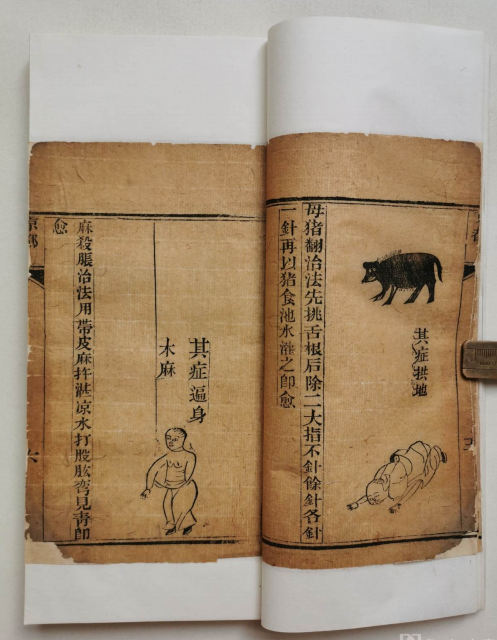 其症拱地
母猪翻治法先挑舌根后除二大指不針餘針各針
一針再以猪食池水灌之即愈
其症逼身
木麻
麻殺脹治法用帶皮麻蘸凉水打股肱弯見青即
愈
京都
六